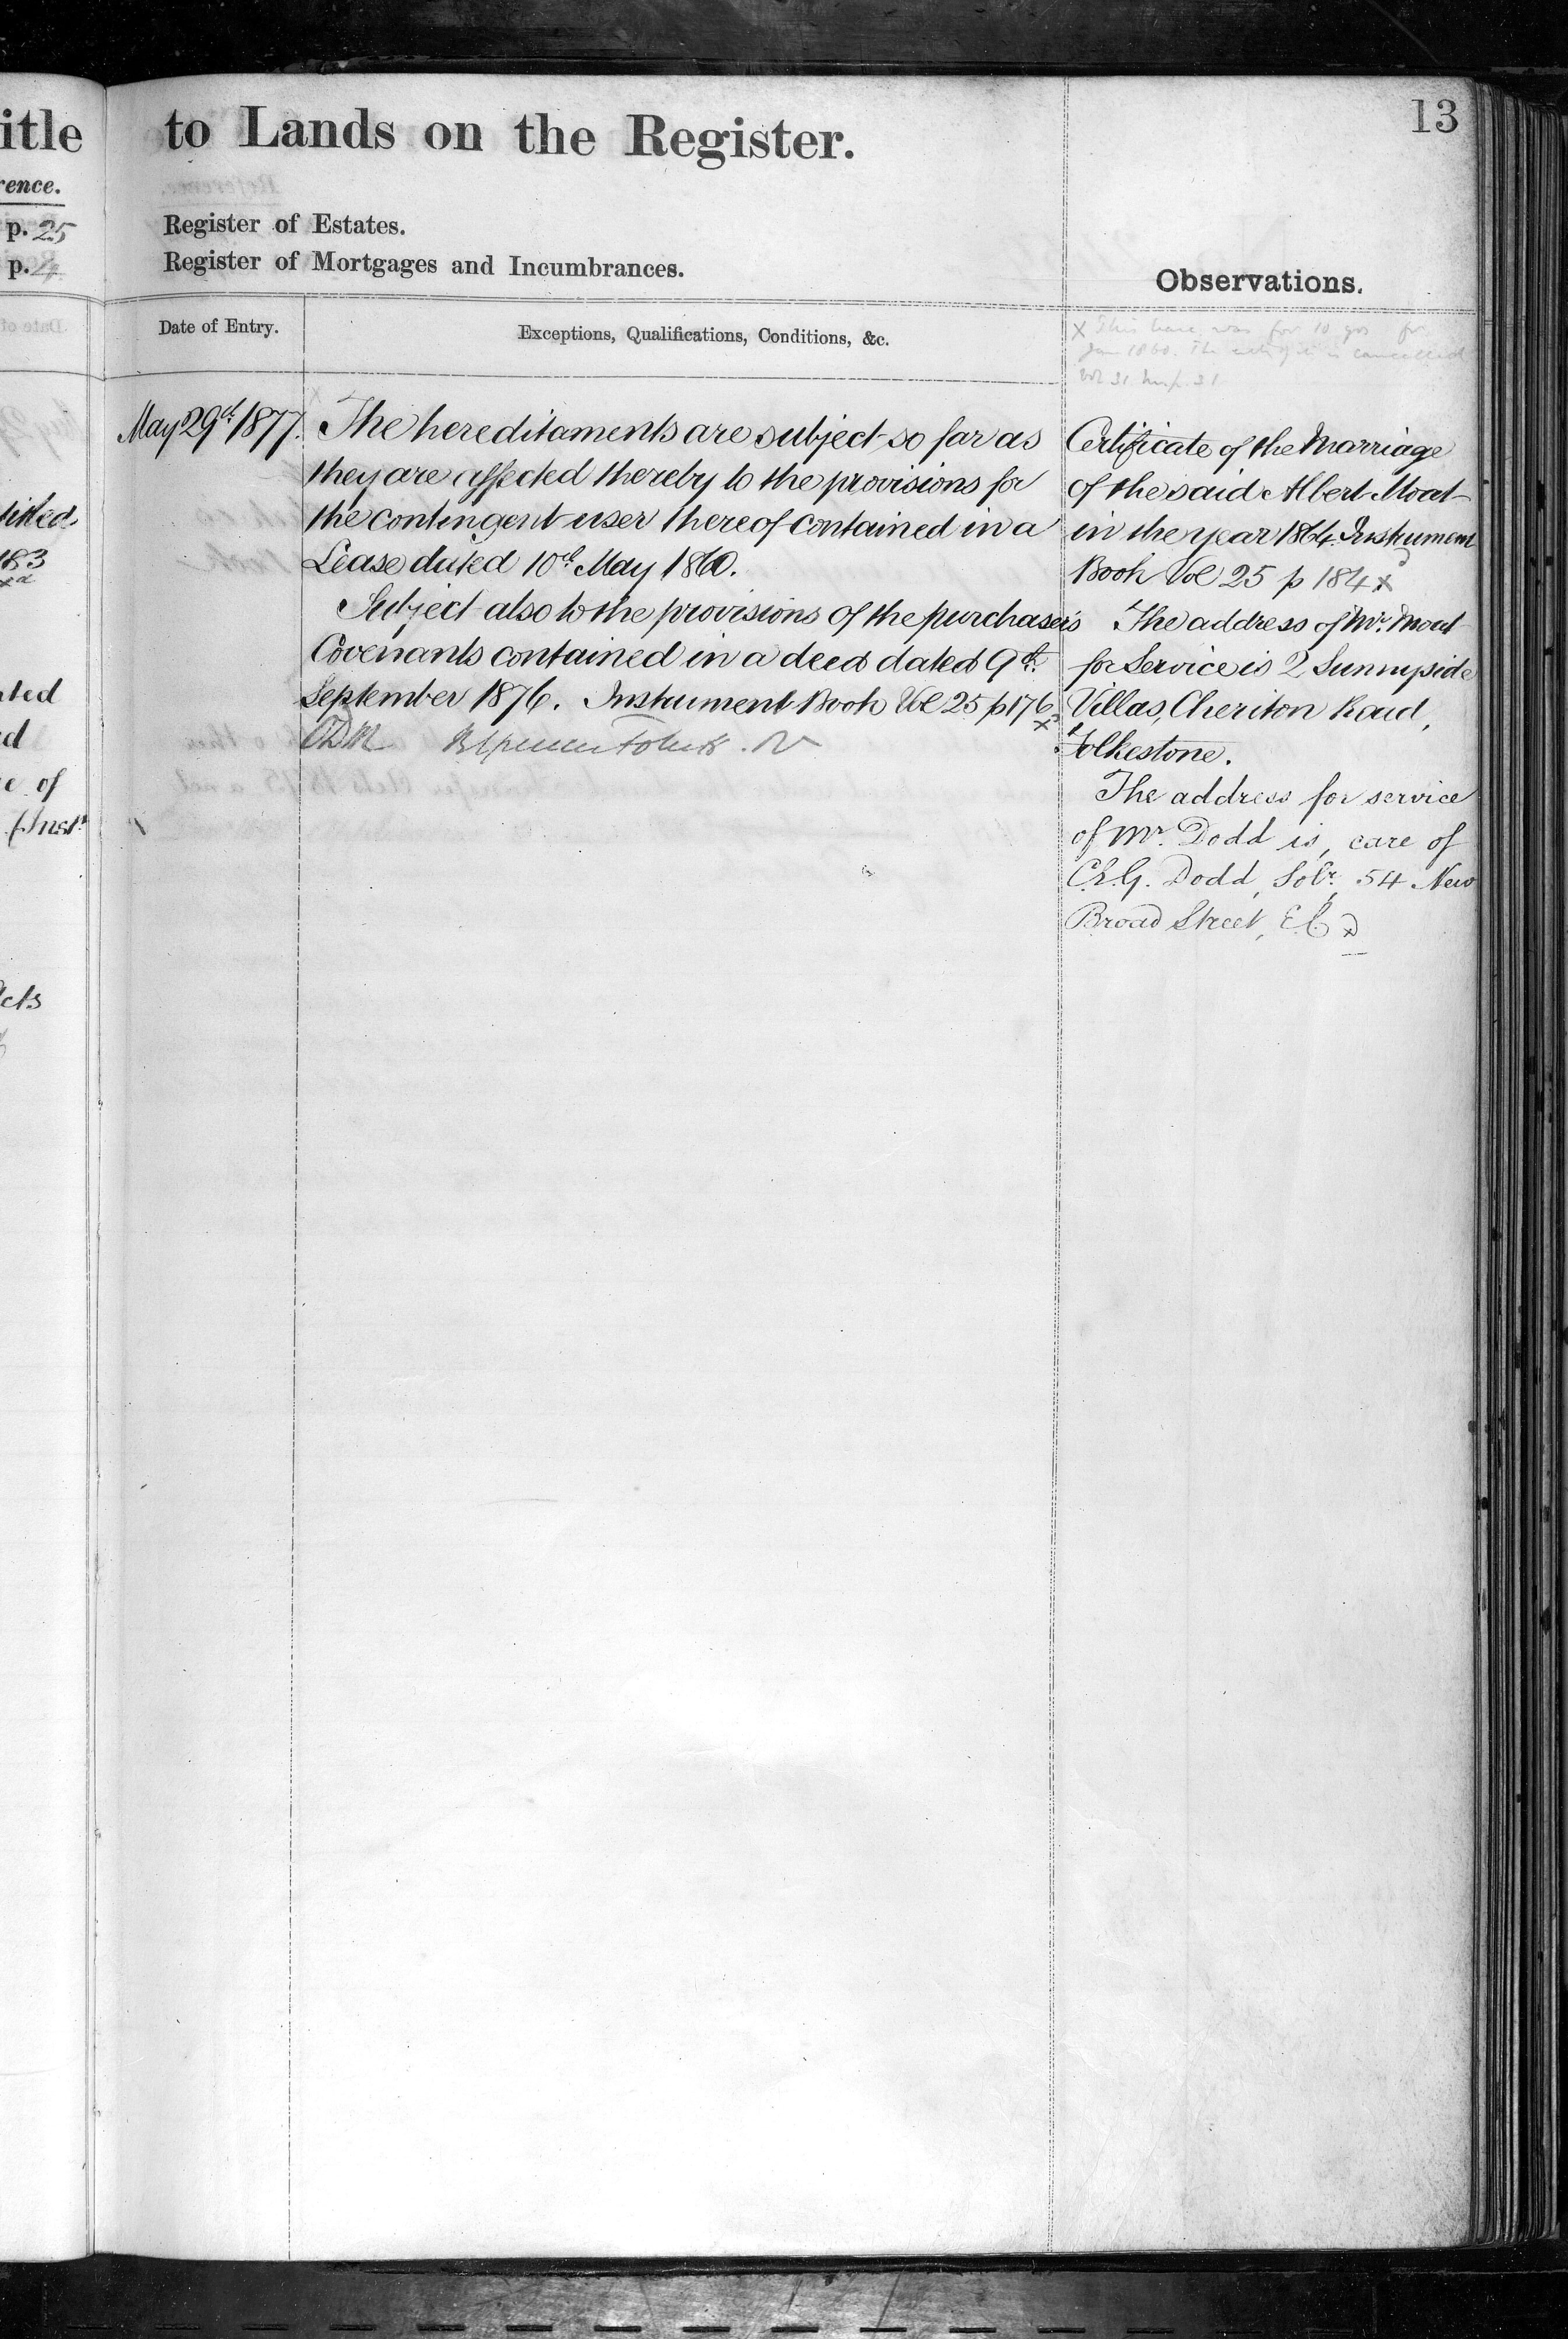 itle
rence.
p. 25
p. 4
titled
183
ated
d
e of
(Inst.
Acts
to Lands on the Register.
13
Register of Estates.
Register of Mortgages and Incumbrances.
Observations.
Date of Entry.
Exceptions, Qualifications, Conditions, &c.
x This lease was for 10 yrs fr.
Jan 1860. The entry of it is cancelled
Vol 31 p. 31
May 29th 1877.
The hereditaments are subject so far as
they are affected thereby to the provisions for
the contingent user thereof contained in a
Lease dated 10th May 1860.
Subject also to the provisions of the purchaser's
Covenants contained in a deed dated 9th
September 1876. Instrument Book Vol 25 p 176
Certificate of the Marriage
of the said Albert Moat
in the year 1864. Instrument
Book Vol 25 p 184 x
The address of Mr. Moat
for Service is 2 Sunnyside
Villas, Cheriton Road,
Folkestone.
The address for service
of Mr. Dodd is, care of
C.E.G. Dodd, Solr. 54 New
Broad Street, E.C.